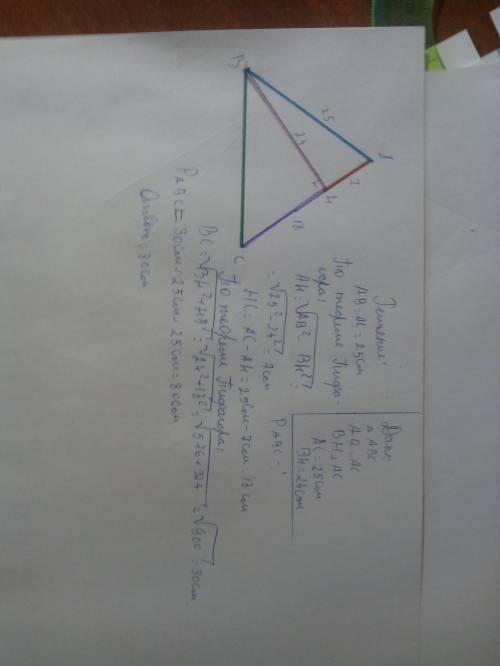 Дано:
△ ABC
AB = AC
BH ⊥ AC
AC = 25см
BH = 24см
P ABC - ?
Решение:
AB = AC = 25см
По теореме Пифа-
гора:
AH = √AB² - BH² =
= √25² - 24² = 7см
HC = AC - AH = 25см - 7см = 18 см
По теореме Пифагора:
BC = √BH² + HB² = √24² + 18² = √576 + 324 = √900 = 30см.
P ABC = 30см + 25см 25см = 80см
Ответ: 80см
B
25
A
24
7
H
18
C